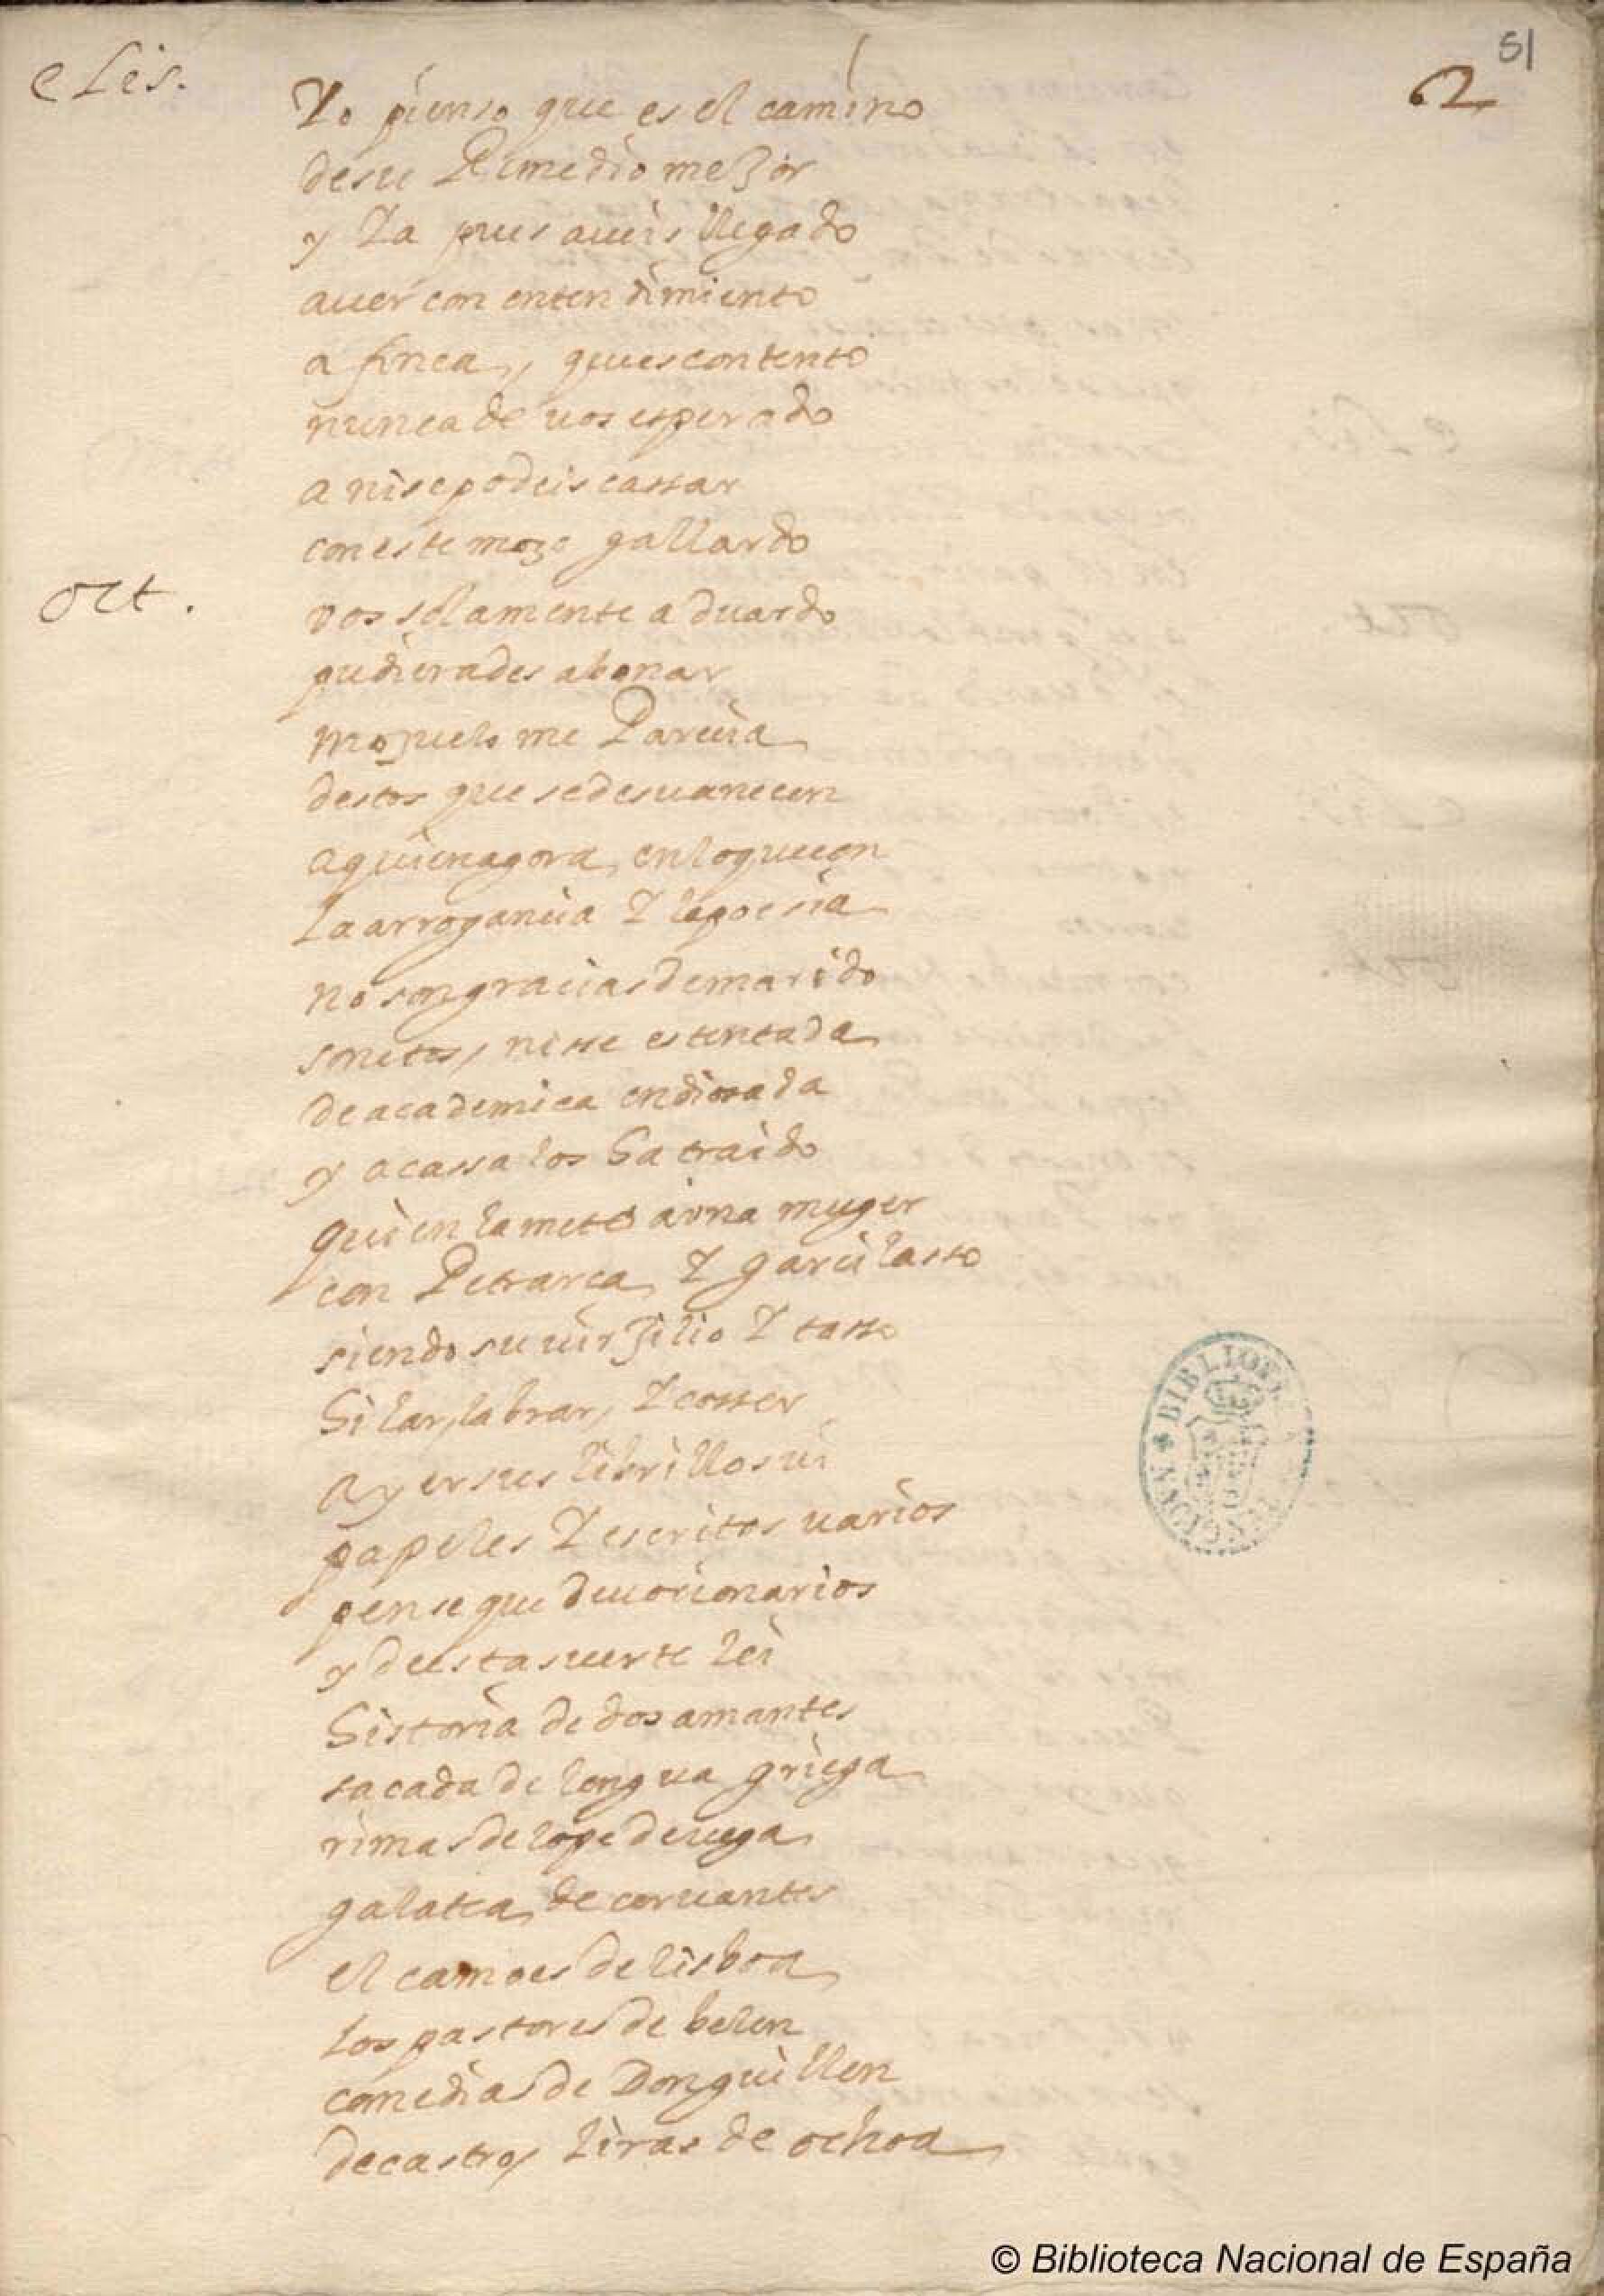 51
2
eLis.
Yo pienso que es el camino
de su Remedio mejor
y Ya pues aueis llegado
auer con entendimiento
a finea, que es contento
nunca de uos esperado
a nise podeis cassar
con este mozo gallardo
Oct.
vos solamente a duardo
pudierades abonar
moçuelo me Parecia
destos que se desuanecen
a quien agora enloquecen
La arrogancia Y la poesia
no son gracias de marido
sonetos, nisse es tentada
de academica endiosada
y a cassa los ha traido
quien la mete a vna muger
con Petrarca Y garcilasso
siendo su uirjilio Y tasso
hilar, labrar, Y cosser
ayer sus librillos ui
papeles Y escritos uarios
pense que deuocionarios
y desta suerte lei
historia de dos amantes
sacada de lengua griega
rimas de lope de uega
galatea de ceruantes
el camoes de lisboa
Los pastores de belen
comedias de Don guillen
de castro, liras de ochoa
BIBLIOTECA NACIONAL
© Biblioteca Nacional de España